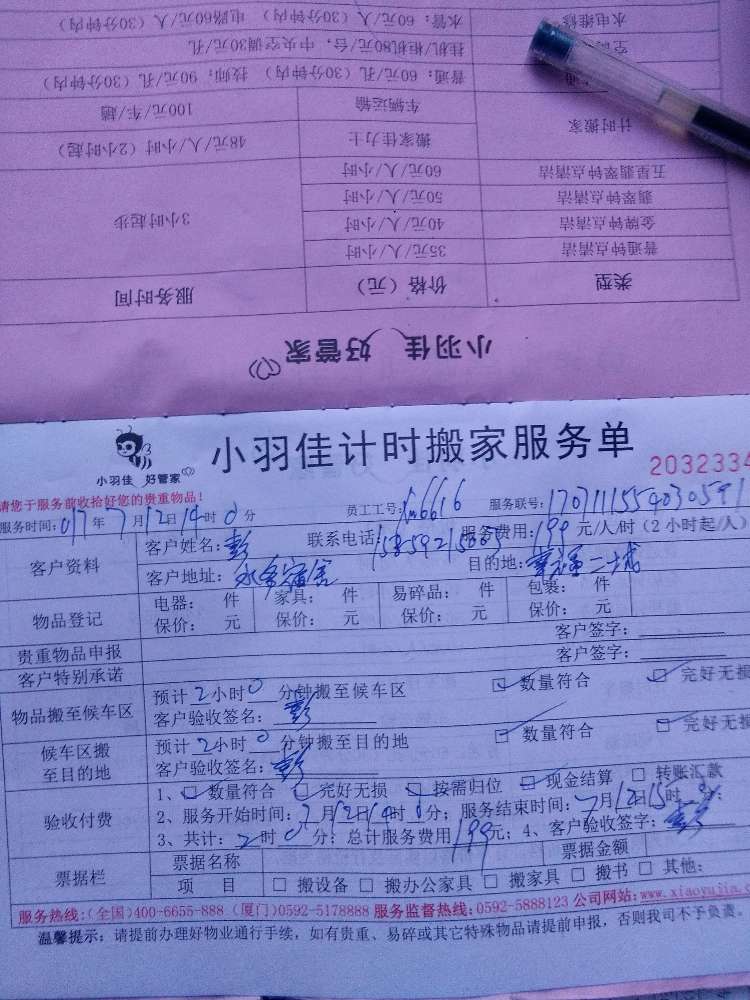 水电维修 水管：60元/人（30分钟内） 电路60元/人（30分钟内）
挂机/柜机80元/台，中央空调30元/孔
普通：60元/孔（30分钟内） 技师：90元/孔（30分钟内）
计时搬家 车辆运输 100元/车/趟
搬家佳力士 48元/人/小时（2小时起）
五星翡翠钟点清洁 60元/人/小时
翡翠钟点清洁 50元/人/小时 3小时起步
金牌钟点清洁 40元/人/小时
普通钟点清洁 35元/人/小时
类型 价格（元） 服务时间
小羽佳 好管家
小羽佳 好管家
小羽佳计时搬家服务单
2032334
请您于服务前收拾好您的贵重物品！
服务时间：017年7月12日14时0分 员工工号： 服务联号：
客户资料 客户姓名：彭 联系电话： 服务费用：199元/人/时（2小时起/人）
客户地址： 目的地：
物品登记 电器： 件 家具： 件 易碎品： 件 包裹： 件
保价： 元 保价： 元 保价： 元 保价： 元
贵重物品申报 客户签字：
客户特别承诺 客户签字：
物品搬至候车区 预计2小时0分钟搬至候车区 数量符合 完好无损
客户验收签名：彭
候车区搬至目的地 预计2小时0分钟搬至目的地 数量符合 完好无损
客户验收签名：彭
验收付费 1、数量符合 完好无损 按需归位 现金结算 转账汇款
2、服务开始时间：7月12日14时0分；服务结束时间：7月12日15时
3、共计：2时0分；总计服务费用199元；4、客户验收签字：彭
票据栏 票据名称 票据金额
项 目 搬设备 搬办公家具 搬家具 搬书 其他：
服务热线：(全国)400-6655-888 (厦门)0592-5178888 服务监督热线：0592-5888123 公司网站：www.xiaoyujia.c
温馨提示：请提前办理好物业通行手续，如有贵重、易碎或其它特殊物品请提前申报，否则我司不予负责。